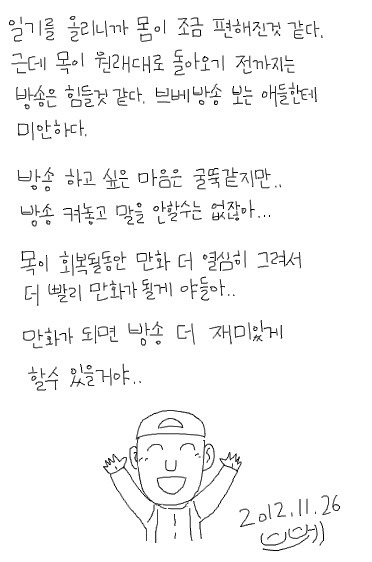 일기를 올리니까 몸이 조금 편해진것 같다.
근데 목이 원래대로 돌아오기 전까지는
방송은 힘들것 같다. 브베방송 보는 애들한테
미안하다.
방송 하고 싶은 마음은 굴뚝같지만..
방송 켜놓고 말을 안할수는 없잖아...
목이 회복될동안 만화 더 열심히 그려서
더 빨리 만화가 될게 야들아..
만화가 되면 방송 더 재미있게
할수 있을거야..
2012.11.26